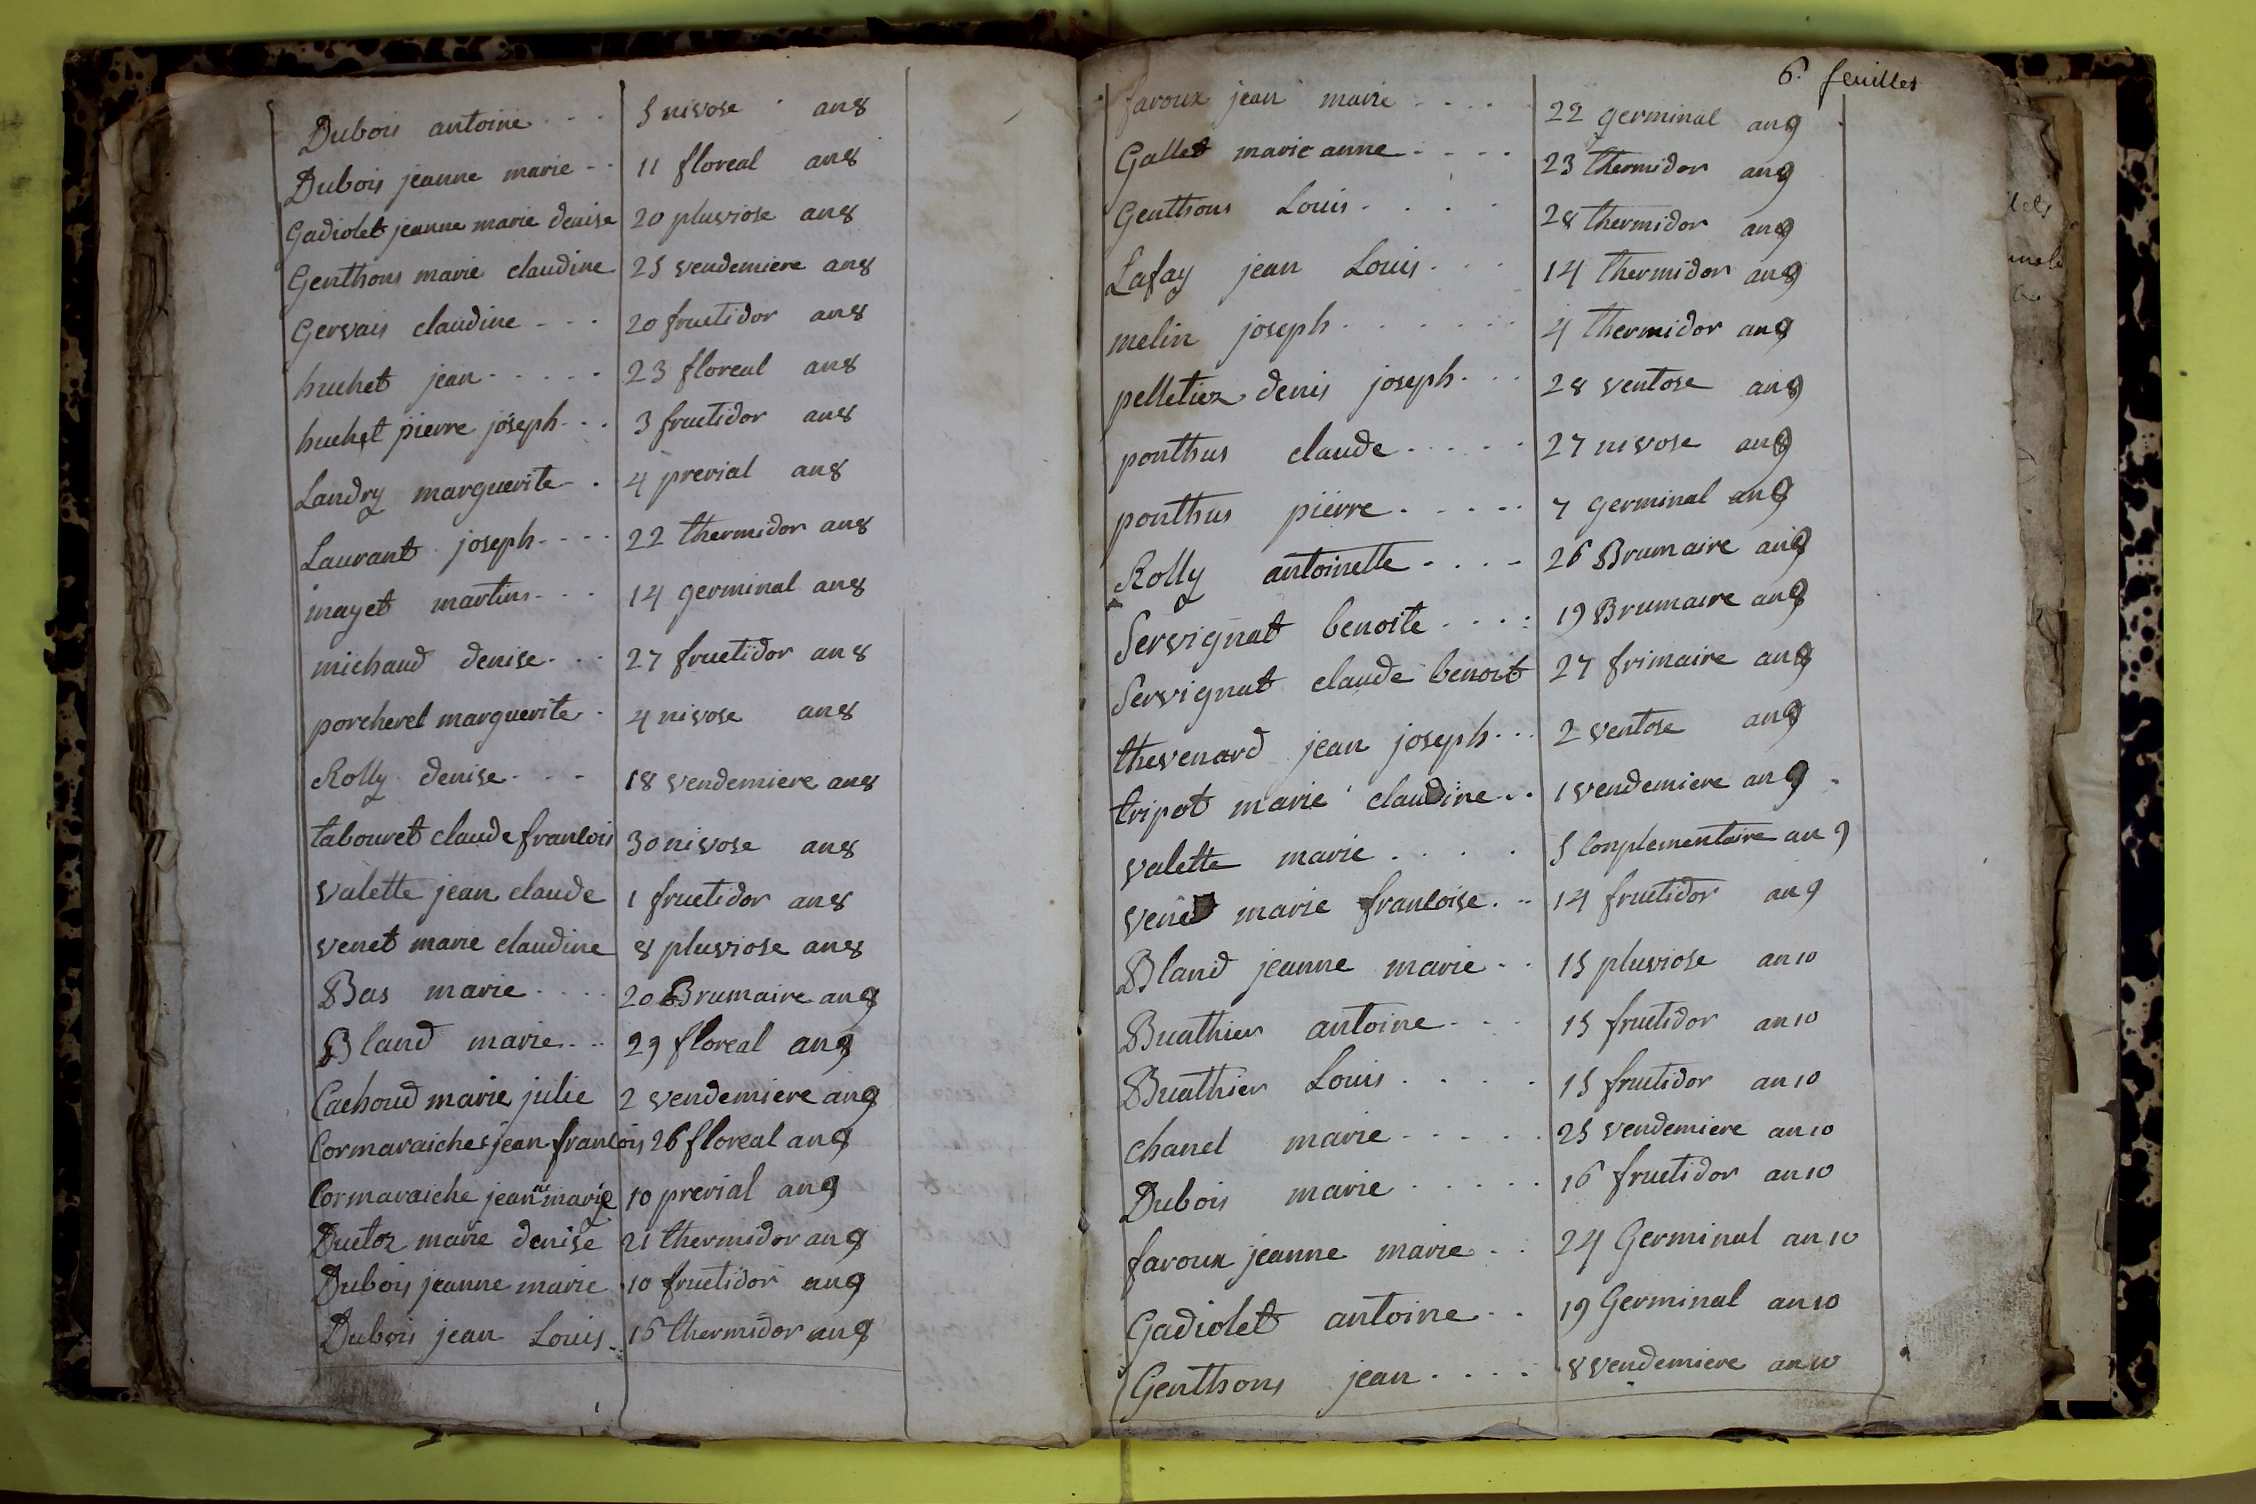 Dubois antoine - - - 5 nivose an 8
Dubois jeanne marie - - 11 floreal an 8
Gadiolet jeanne marie denise 20 pluviose an 8
Genthons marie claudine 25 vendemiere an 8
Gervais claudine - - - 20 fructidor an 8
huchet jean - - - - - 23 floreal an 8
huchet pierre joseph - - - 3 fructidor an 8
Landry marguerite - - 4 prerial an 8
Laurant joseph - - - - 22 thermidor an 8
mayet martin - - - 14 germinal an 8
michaud denise - - - 27 fructidor an 8
porcherel marguerite - 4 nivose an 8
Rolly denise - - - 18 vendemiere an 8
tabouret claude francois 30 nivose an 8
valette jean claude 1 fructidor an 8
venet marie claudine 8 pluviose an 8
Bas marie - - - - 20 Brumaire an 9
Bland marie - - - 29 floreal an 9
Cachoud marie julie 2 vendemiere an 9
Cormaraiche jean francois 26 floreal an 9
Cormaraiche jeanne marie 10 prerial an 9
Buctoz marie denise 21 thermidor an 9
Dubois jeanne marie 10 fructidor an 9
Dubois jean Louis - - 16 thermidor an 9
6. feuilles
faroux jean marie - - - - 22 germinal an 9
Gallet marie anne - - - - 23 thermidor an 9
Genthons Louis - - - - 28 thermidor an 9
Lafay jean Louis - - - 14 thermidor an 9
melin joseph - - - - - - 4 thermidor an 9
pelletier denis joseph - - - 28 ventose an 9
ponthus claude - - - - - 27 nivose an 9
ponthus pierre - - - - - 7 germinal an 9
Rolly antoinette - - - - 26 Brumaire an 9
Servignat benoite - - - - 19 Brumaire an 9
Servignat claude benoit 27 frimaire an 9
thevenard jean joseph - - - 2 ventose an 9
tripot marie claudine - - 1 vendemiere an 9
valette marie - - - - 5 Conplementaire an 9
venet marie francoise - - 14 fructidor an 9
Bland jeanne marie - - 15 pluviose an 10
Buathier antoine - - - 15 fructidor an 10
Buathier Louis - - - - 15 fructidor an 10
chanel marie - - - - - 25 vendemiere an 10
Dubois marie - - - - - 16 fructidor an 10
faroux jeanne marie - - 24 Germinal an 10
Gadiolet antoine - - 19 Germinal an 10
Genthons jean - - - - 8 vendemiere an 10